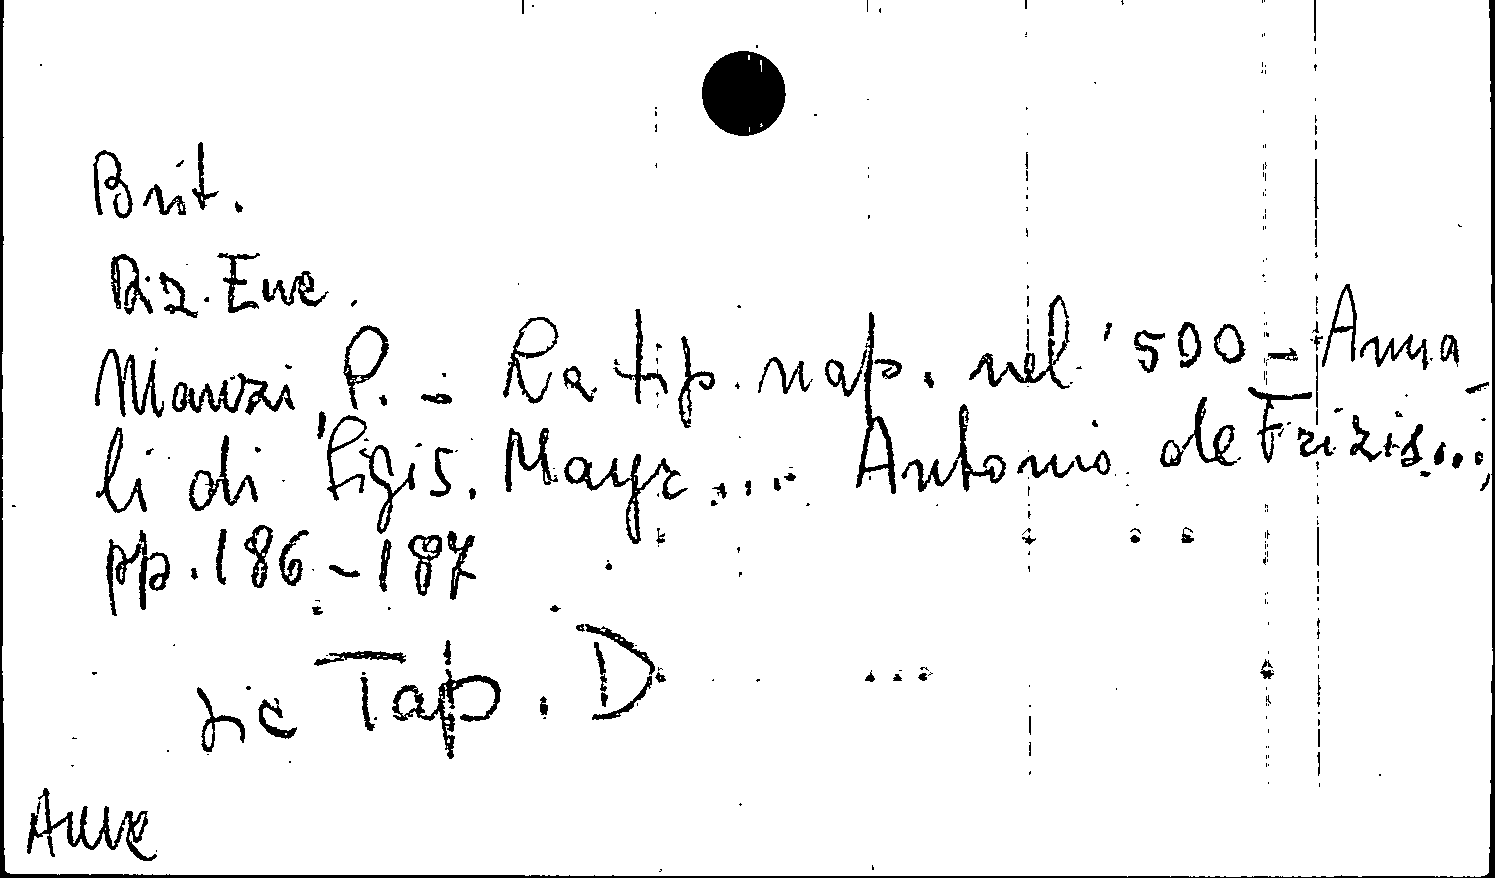 Brit.
Diz. Enc.
Manzi, P. - La tip. nap. nel '500 - Anna-
li di Sigis. Mayr .... Antonio de Frizis...;
pp. 186-187
sic Tap. D